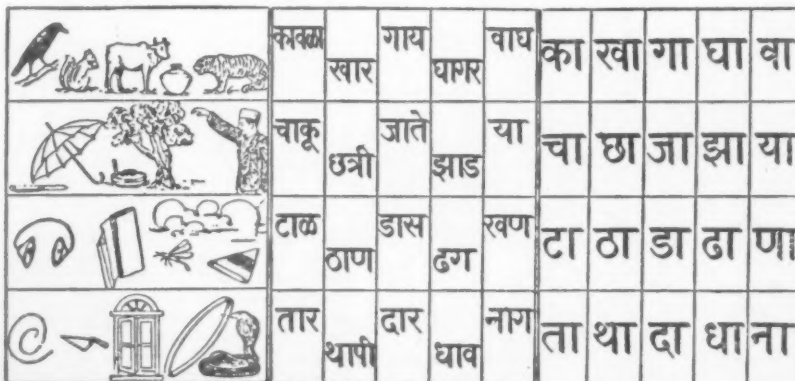 कावळा खार गाय घागर वाघ का खा गा घा वा
चाकू छत्री जाते झाड या चा छा जा झा या
टाळ ठाण डास ढग खण टा ठा डा ढा णा
तार थापी दार धाव नाग ता था दा धा ना